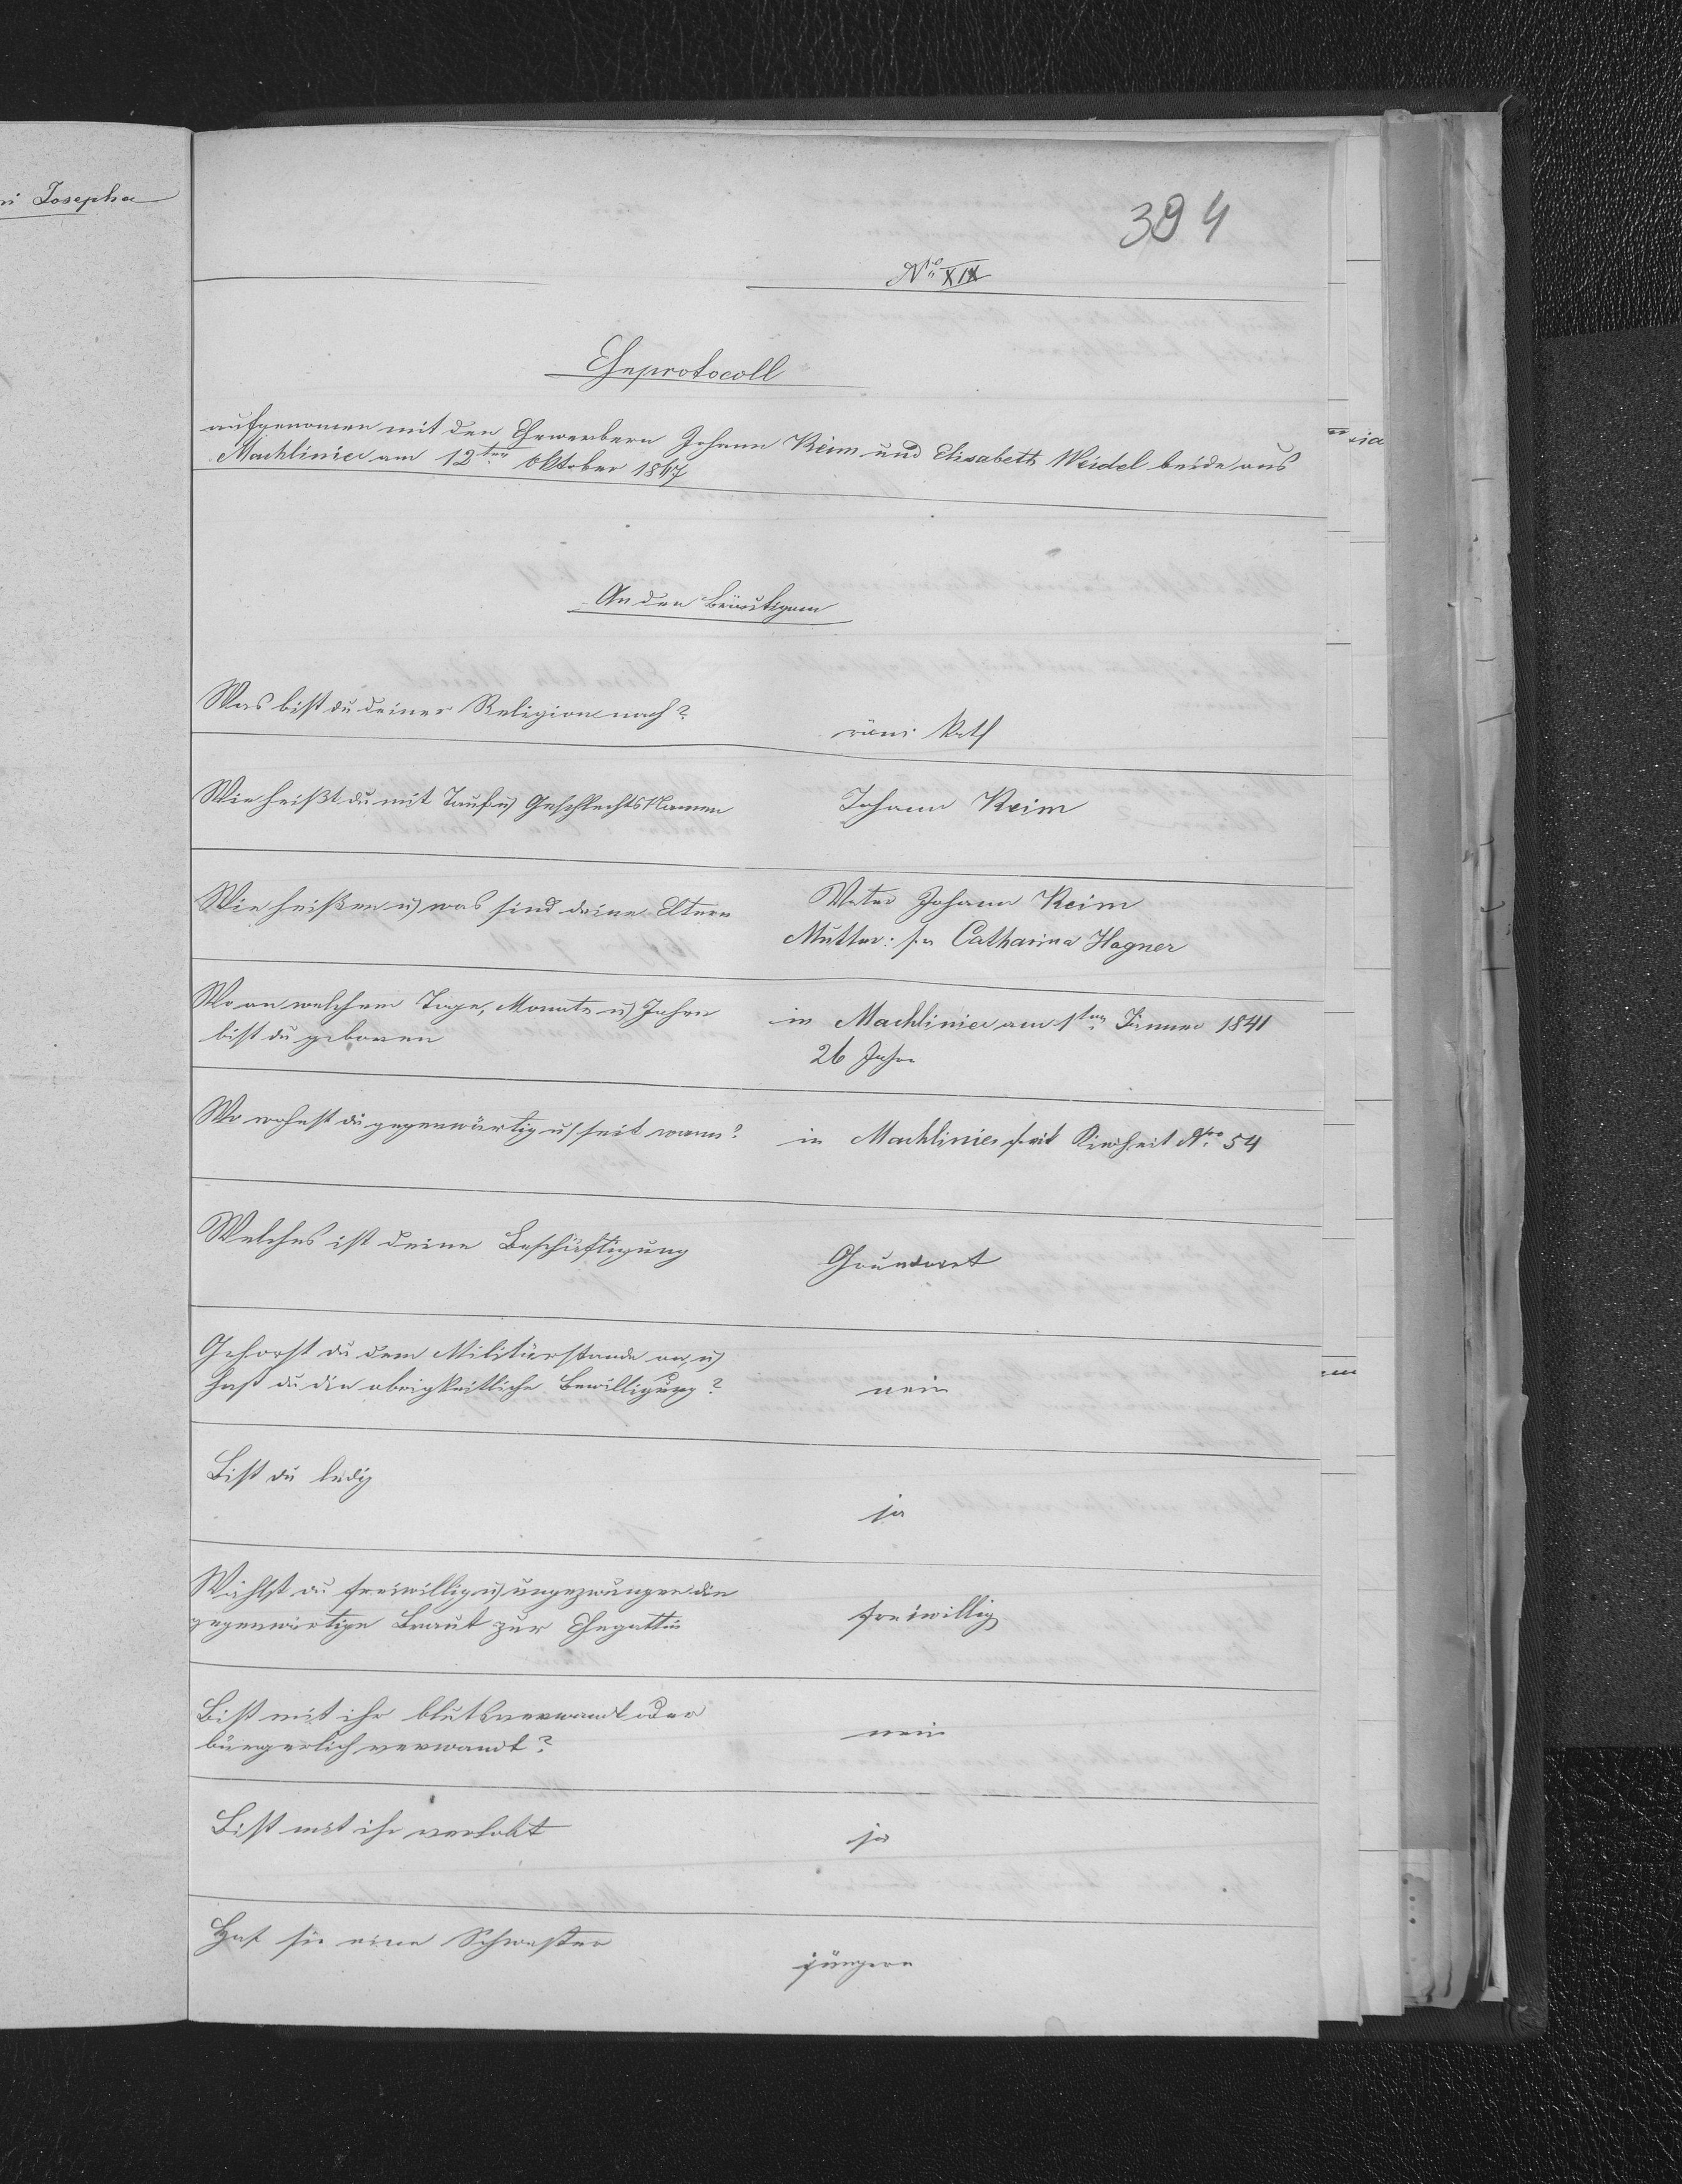 Josepha
394
Nro XIX
Eheprotocoll
aufgenomen mit den Ehewerbern Johann Keim und Elisabeth Weidel beide aus
Machliniec am 12ten Oktober 1867
An den Bräutigam
Was bist du deiner Religion nach?
röm: Kath
Wie heißt du mit Tauf u) Geschlechts Namen
Johann Keim
Wie heißen u) was sind deine Eltern
Vater Johann Keim
Mutter: Catharina Hagner
Wo an welchem Tage, Monate u) Jahre
bist du geboren
in Machliniec am 1ten Jänner 1841
26 Jahre
Wo wohnst du gegenwärtig u) seit wann?
in Machliniec seit Kindheit Nro 54
Welches ist deine Beschäftigung
Grundwirt
Gehörst du dem Militärstande an, u)
hast du die obrigkeitliche Bewilligung?
nein
Bist du ledig
ja
Wählst du freiwillig u) ungezwungen die
gegenwärtige Braut zur Ehegattin
freiwillig
Bist mit ihr blutsverwandt oder
bürgerlich verwandt?
nein
Bist mit ihr verlobt
ja
Hat sie eine Schwester
jüngere